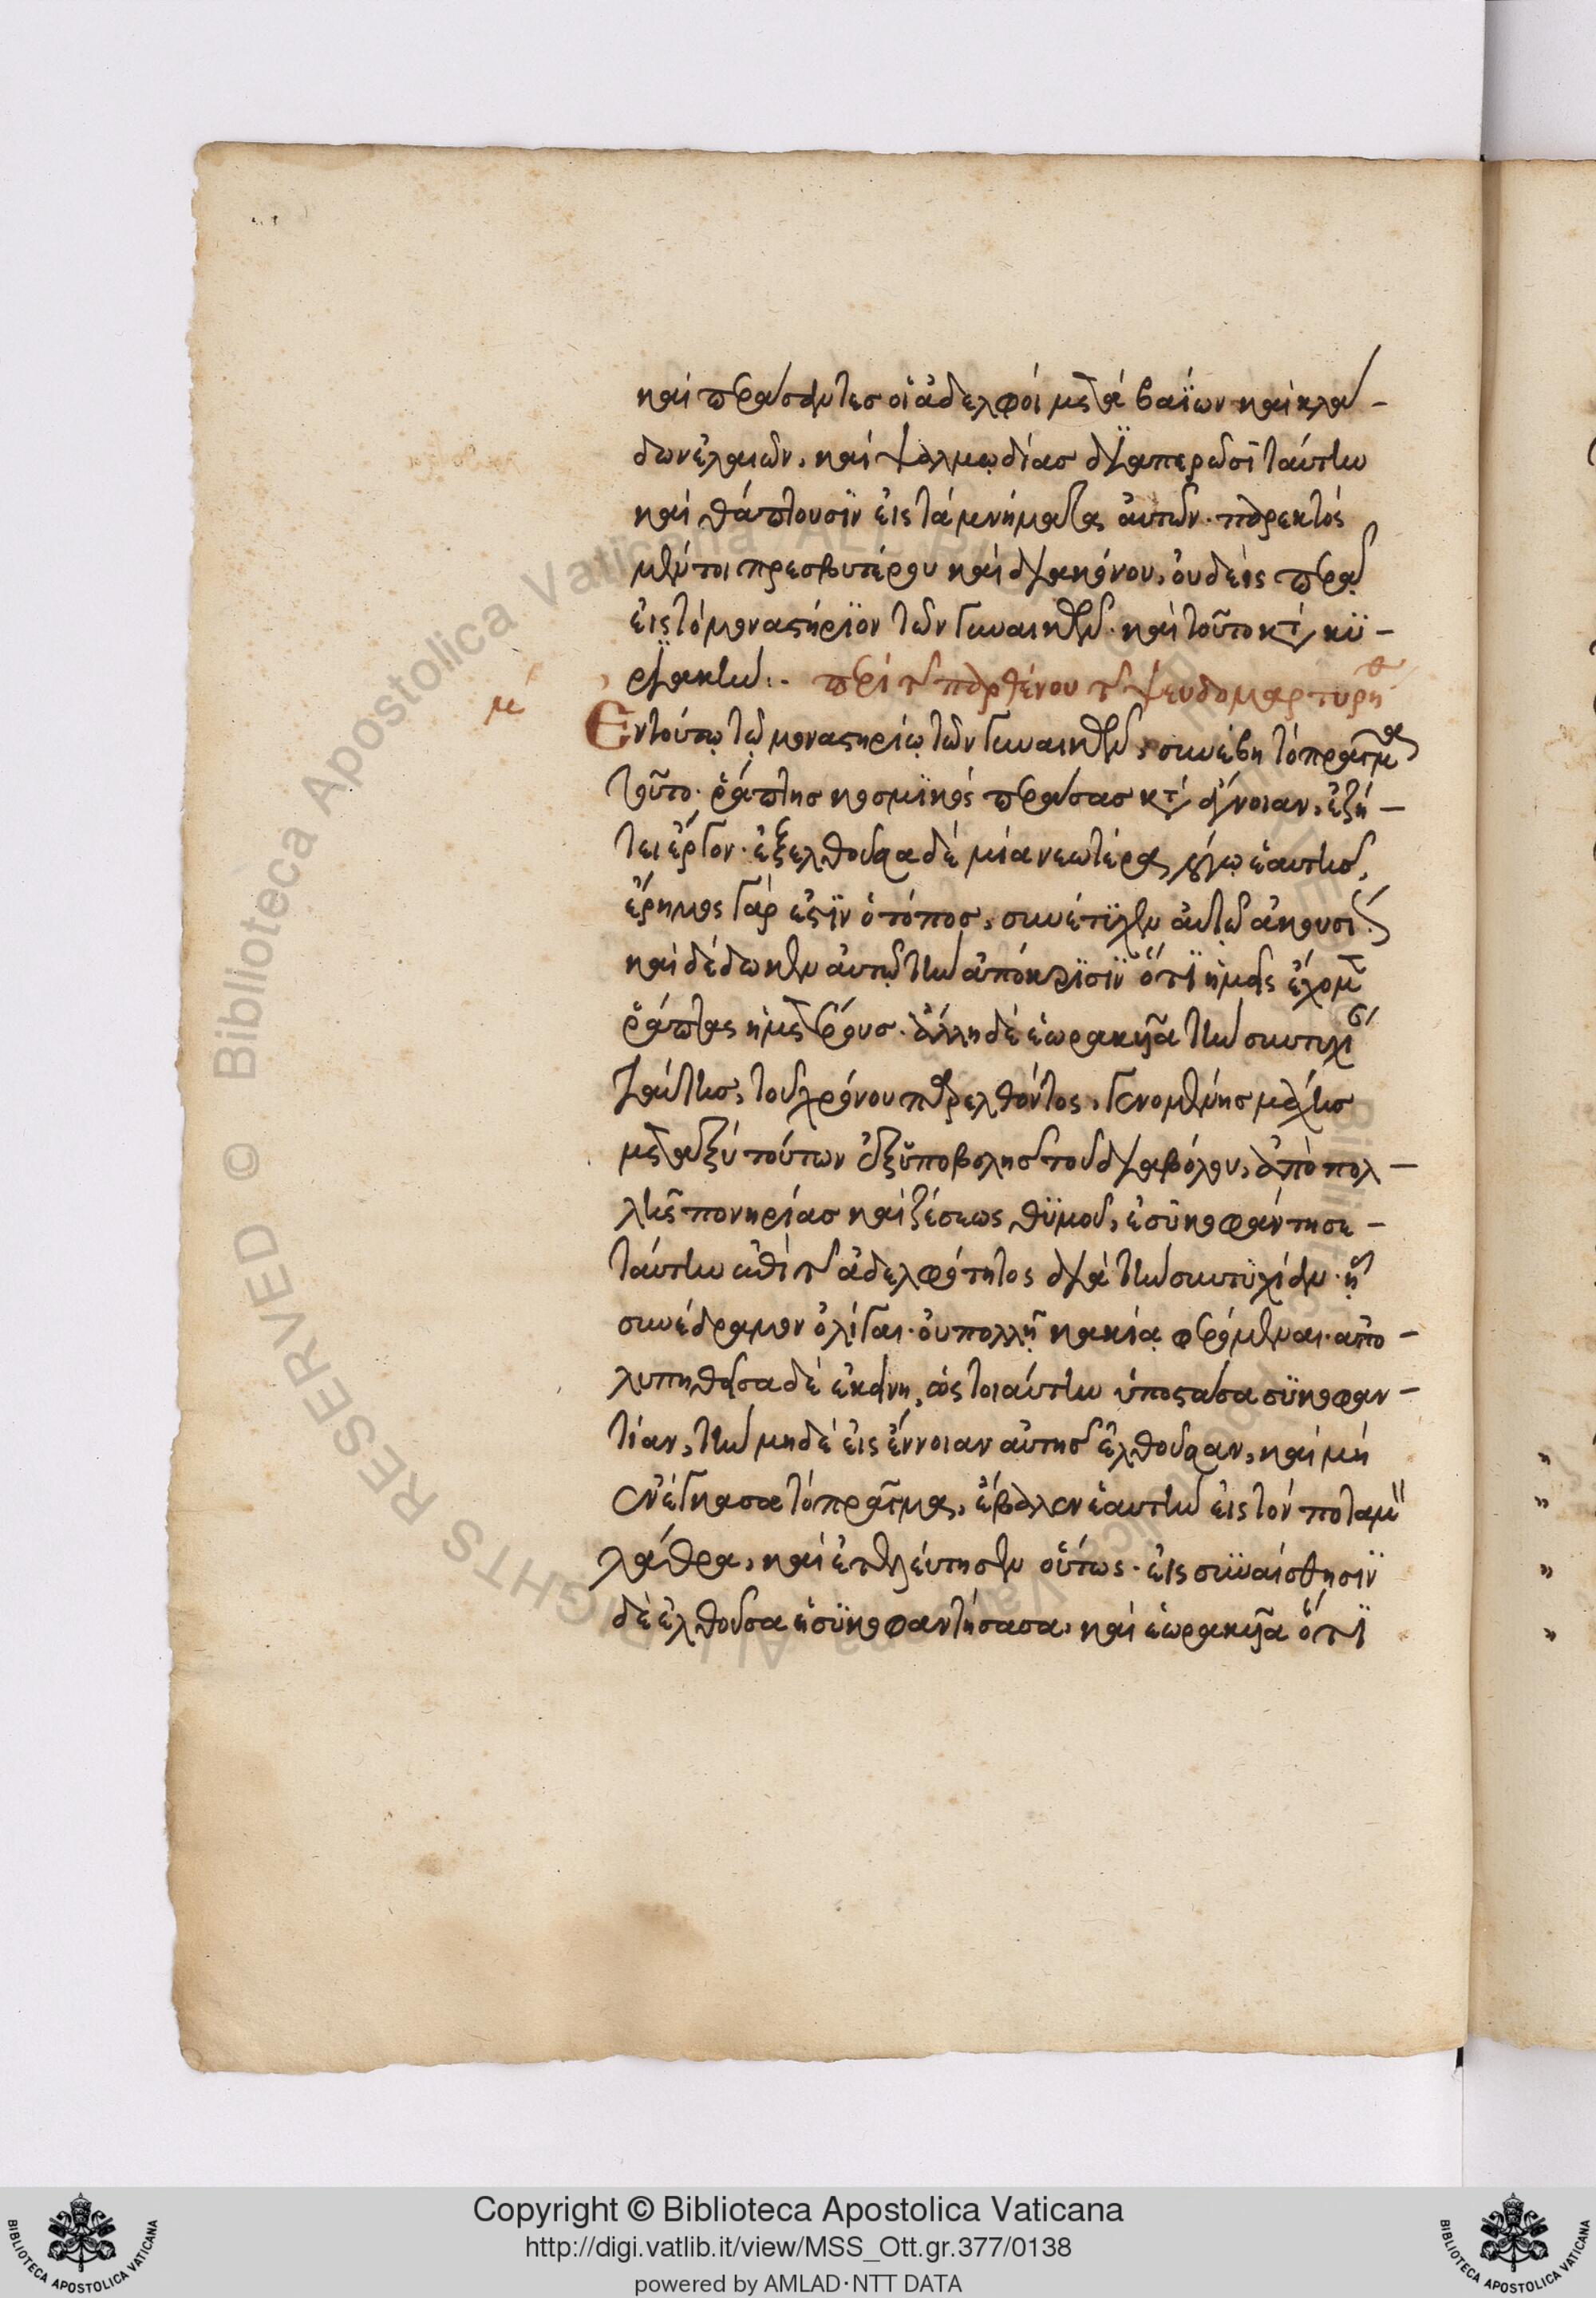 καὶ περάσαντες οἱ ἀδελφοὶ μετὰ βαΐων καὶ κλά-
δων ἐλαιῶν, καὶ ψαλμωδίας διαπερῶσϊ ταύτην
καὶ θάπτουσϊν εἰς τὰ μνήματα αὐτῶν· παρεκτὸς
μέντοι πρεσβυτέρου καὶ διακόνου, οὐδεὶς περᾶ
εἰς τὸ μοναστήρϊον τῶν γυναικῶν· καὶ τοῦτο κατὰ κϋ-
ριακήν:- περὶ τῆς παρθένου τῆς ψευδομαρτυρηθ
μ
Ἐν τούτῳ τῷ μοναστηρίῳ τῶν γυναικῶν, συνέβη τὸ πρᾶγμα
τοῦτο· ῥάπτης κοσμϊκὸς περάσας κατὰ ἄγνοιαν, ἐζή-
τει ἔργον· ἐξελθοῦσα δὲ μία νεωτέρα λόγῳ ἑαυτῆς,
ἔρημος γάρ ἐστϊν ὁ τόπος, συνέτϋχεν αὐτῷ ἀκουσίως
καὶ δέδωκεν αὐτῷ τὴν ἀπόκρϊσϊν ὅτϊ ἡμεῖς ἔχομεν
ῥάπτας ἡμετέρους· ἄλλη δὲ ἑωρακυῖα τὴν συντυχί
ταύτης, τοῦ χρόνου παρελθόντος, γενομένης μάχης
μεταξὺ τούτων ἐξ ὑποβολῆς τοῦ διαβόλου, ἀπὸ πολ-
λῆς πονηρίας καὶ ζέσεως θϋμοῦ, ἐσϋκοφάντησε-
ταύτην ἐπὶ τῆς ἀδελφότητος διὰ τὴν συντϋχίαν· ᾗ
συνέδραμον ὀλίγαι· οὐ πολλῇ κακίᾳ φερόμεναι· ἀπο-
λυπηθεῖσα δὲ ἐκείνη, ὡς τοιαύτην ὑποστᾶσα σϋκοφαν-
τίαν, τὴν μηδὲ εἰς ἔννοιαν αὐτῆς ἐλθοῦσαν, καὶ μὴ
ἐνέγκασα τὸ πρᾶγμα, ἔβαλεν ἑαυτὴν εἰς τὸν ποταμὸν
λάθρα, καὶ ἐτελεύτησεν οὕτως· εἰς συναίσθησϊν
δὲ ἐλθοῦσα ἡ σϋκοφαντήσασα, καὶ ἑωρακυῖα ὅτϊ
Copyright © Biblioteca Apostolica Vaticana
http://digi.vatlib.it/view/MSS_Ott.gr.377/0138
powered by AMLAD·NTT DATA